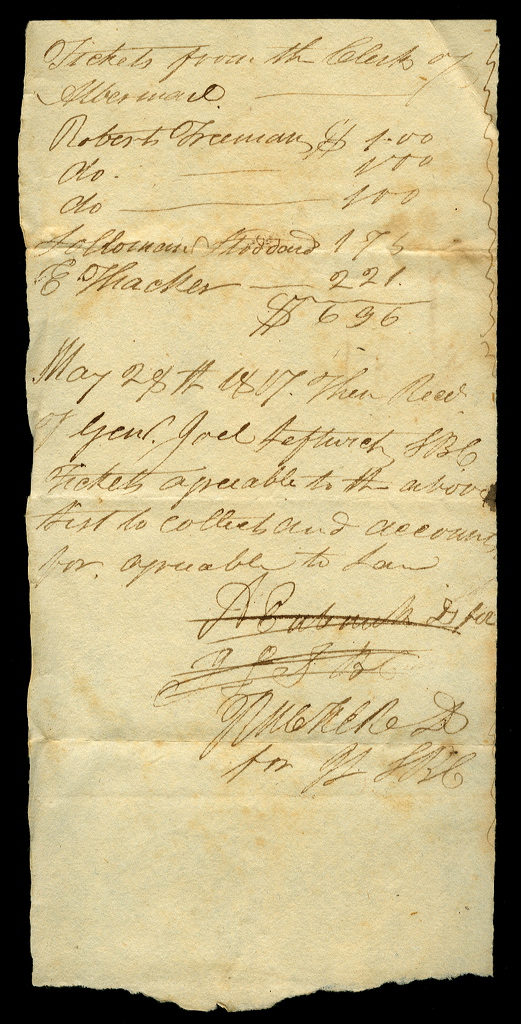 Tickets from the Clerk of
Albermarl
Roberts Freeman $ 1.00
do. 100
do 100
Stoddard 175
E Thacker 221.
$ 696
May 28th 1817. Then Recd
of Genl. Joel Leftwich SBC
Tickets agreeable to the above
list to collect and account
for agreeable to Law
D for
SBC
for JL SBC